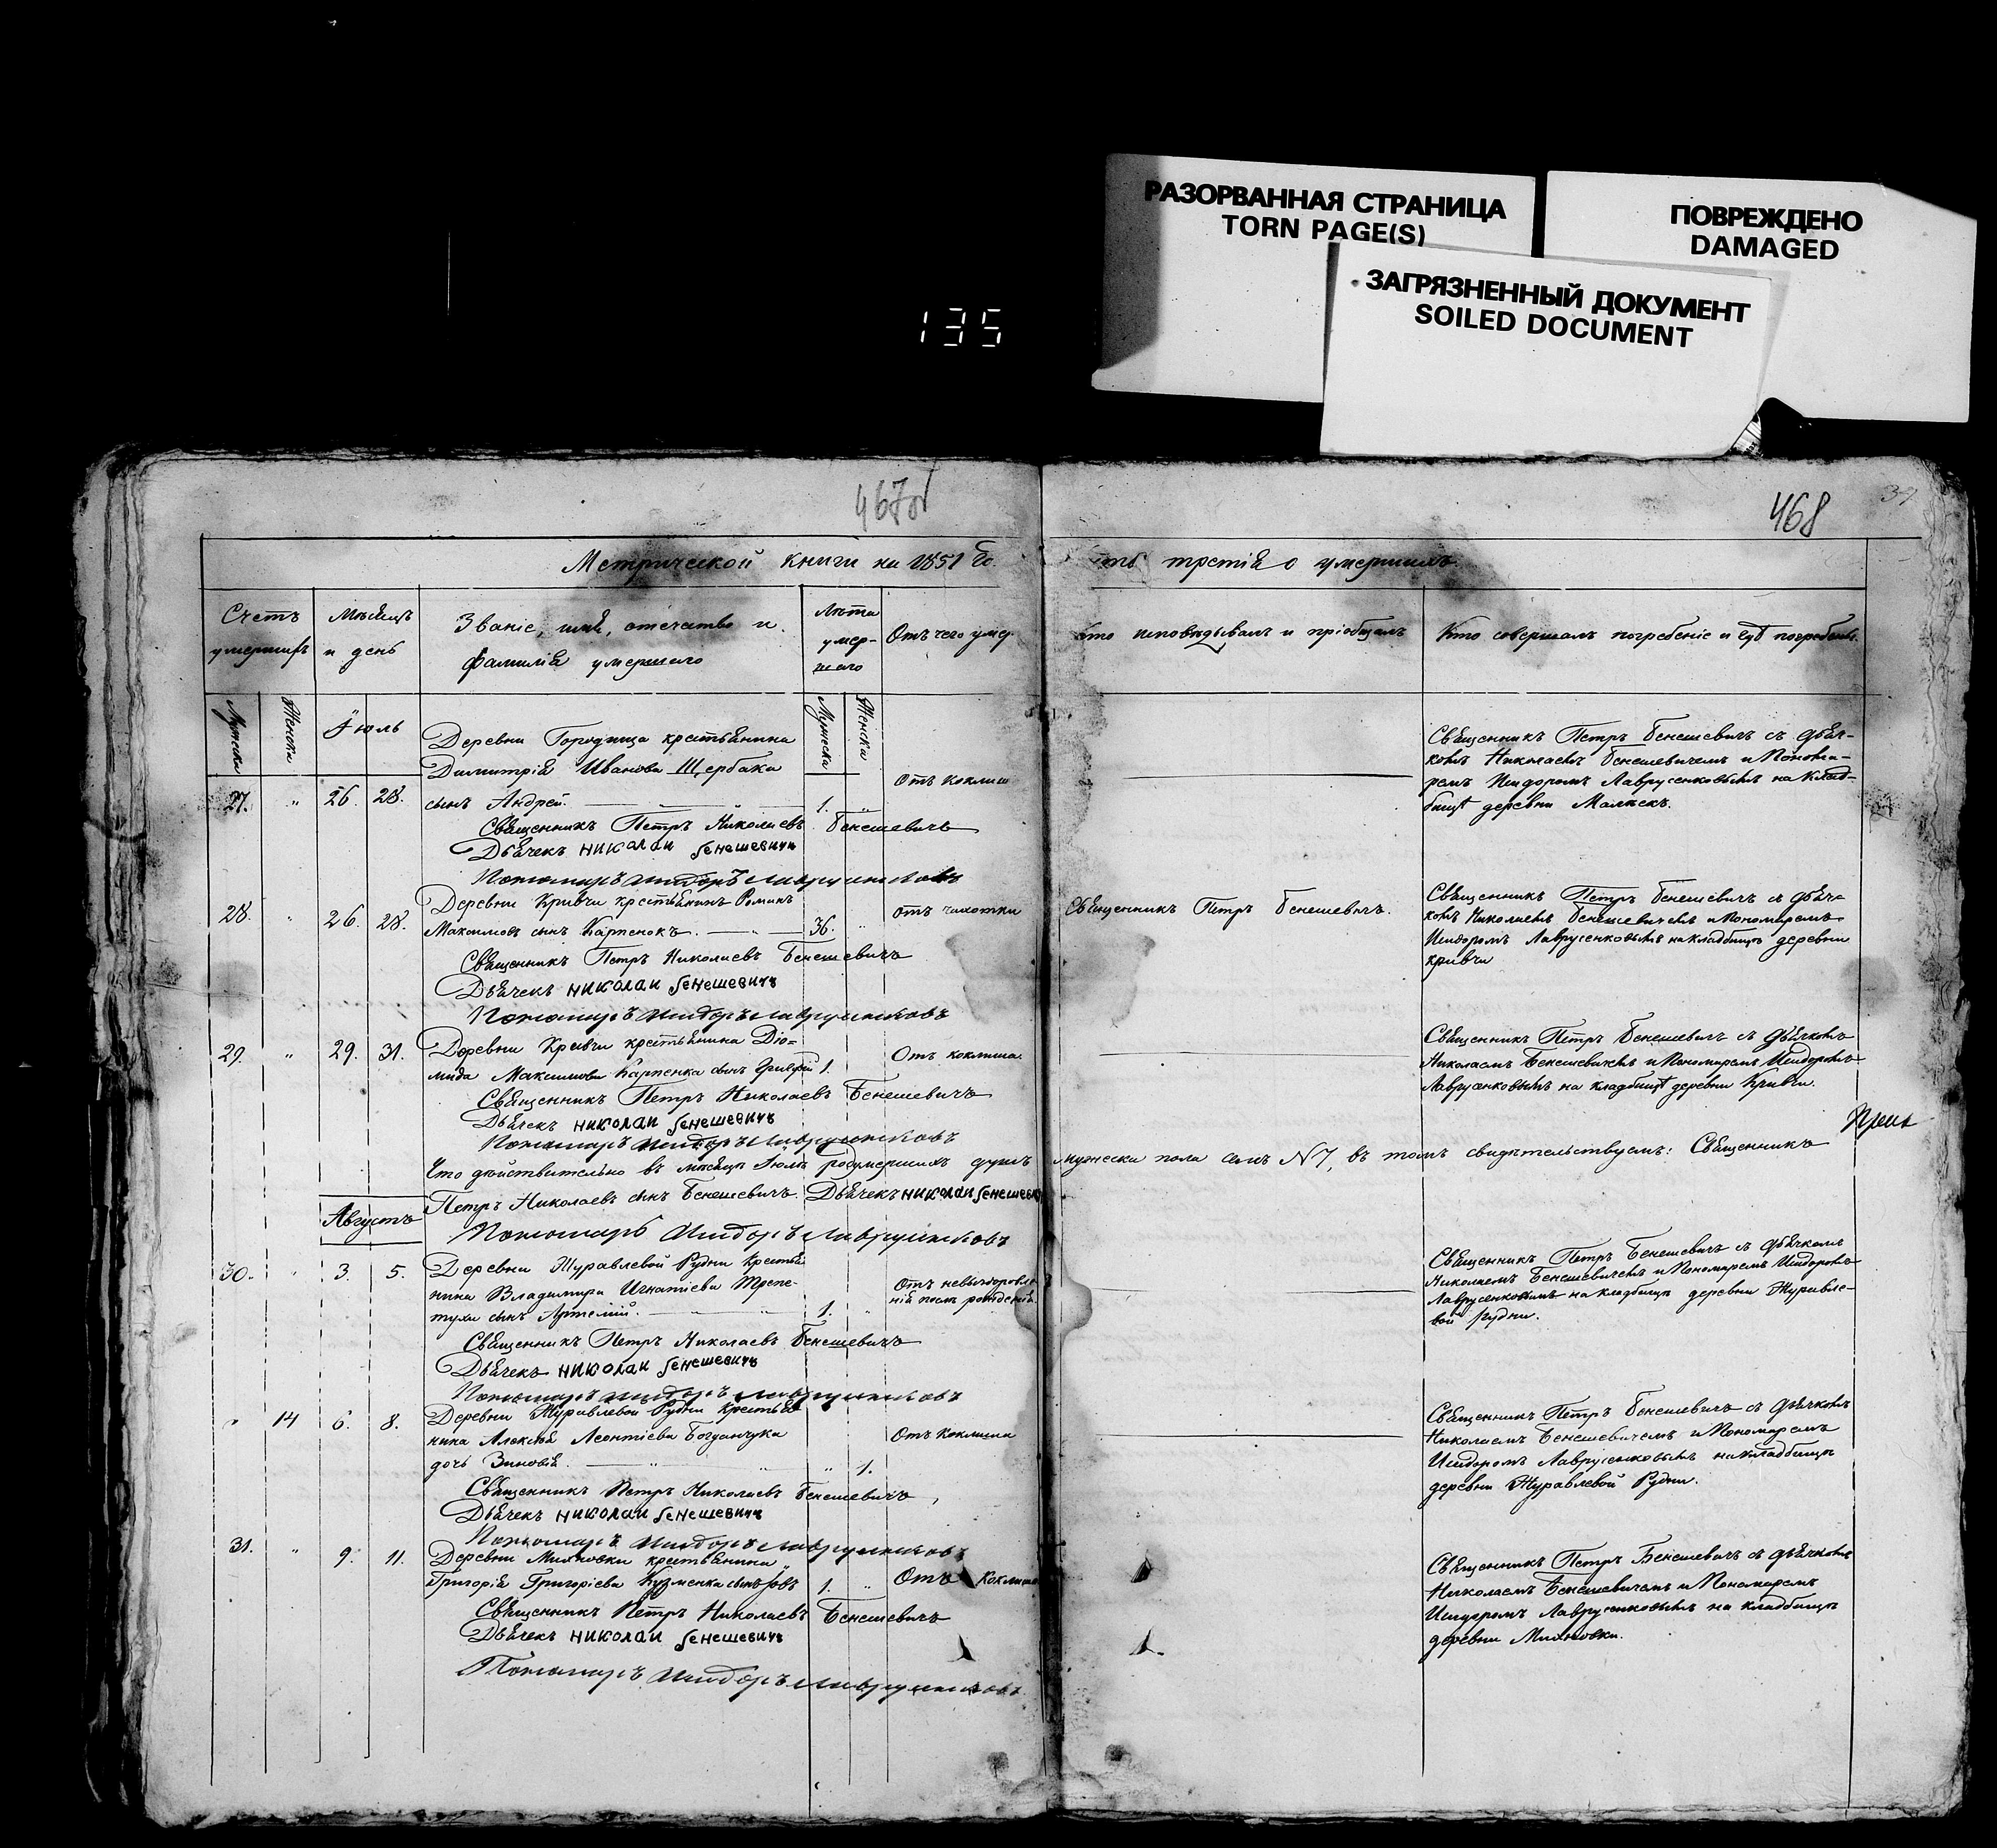 РАЗОРВАННАЯ СТРАНИЦА
TORN PAGE(S)
ПОВРЕЖДЕНО
DAMAGED
ЗАГРЯЗНЕННЫЙ ДОКУМЕНТ
SOILED DOCUMENT
135
467об
468
39
Метрической книги на 1851 го.
сть третія о умершихъ.
Счетъ умершихъ
Мѣсяцъ и день
Званіе, имя, отечество и фамилія умершаго
Лѣта умершаго
Отъ чего умер.
Кто исповѣдывалъ и пріобщалъ
Кто совершалъ погребеніе и гдѣ погребены.
Мужеска
Женска
Іюль
Мужеска
Женска
Деревни Городища крестьянина
Димитрія Иванова Щербака
27. " 26. 28. сынъ Андрей. 1. " Отъ коклюш
Священникъ Петръ Николаевъ Бенешевичъ
Дьячекъ Николаи Бенешевичъ
Пономаръ Исидоръ Лавруенковъ
Священникъ Петръ Бенешевичъ съ дьяч-
комъ Николаемъ Бенешевичемъ и Понома-
ремъ Исидоромъ Лаврусенковымъ на клад-
бищѣ деревни
28. " 26. 28. Деревни Кривчи крестьянинъ Романъ
Максимовъ сынъ Карпенокъ. 36. " Отъ чахотки
Священникъ Петръ Николаевъ Бенешевичъ
Дьячекъ Николаи Бенешевичъ
Пономаръ Исидоръ Лавруенковъ
Священникъ Петръ Бенешевичъ.
Священникъ Петръ Бенешевичъ съ дьяч-
комъ Николаемъ Бенешевичемъ и Пономаремъ
Исидоромъ Лаврусенковымъ на кладбищѣ деревни
Кривчи
29. " 29. 31. Деревни Кривчи крестьянина Діо-
мида Максимова Карпенка сынъ 1. Отъ коклюша
Священникъ Петръ Николаевъ Бенешевичъ
Дьячекъ Николаи Бенешевичъ
Пономаръ Исидоръ Лавруенковъ
Священникъ Петръ Бенешевичъ съ дьячкомъ
Николаемъ Бенешевичемъ и Пономаремъ Исидоромъ
Лаврусенковымъ на кладбищѣ деревни Кривчи.
Что дѣйствительно въ мѣсяцѣ Іюлѣ умершихъ душъ мужеска пола семь N 7, въ томъ свидѣтельствуемъ: Священникъ
Петръ Николаевъ сынъ Бенешевичъ. Дьячекъ Николаи Бенешевичъ
Пономаръ Исидоръ Лавруенковъ
Августъ
30. " 3. 5. Деревни Журавлевой Рудни крестья
нина Владимира Игнатіева Трепе-
тухи сынъ Артемій. 1. " Отъ невыздоровле
нія послѣ рожденія
Священникъ Петръ Николаевъ Бенешевичъ
Дьячекъ Николаи Бенешевичъ
Пономаръ Исидоръ Лавруенковъ
Священникъ Петръ Бенешевичъ съ дьячкомъ
Николаемъ Бенешевичемъ и Пономаремъ Исидоромъ
Лаврусенковымъ на кладбищѣ деревни Журавле-
вой Рудни.
" 14 6. 8. Деревни Журавлевой Рудни крестья
нина Алексѣя Леонтіева Богданчука
дочь Зиновія. " 1. Отъ коклюша
Священникъ Петръ Николаевъ Бенешевичъ
Дьячекъ Николаи Бенешевичъ
Пономаръ Исидоръ Лавруенковъ
Священникъ Петръ Бенешевичъ съ дьячкомъ
Николаемъ Бенешевичемъ и Пономаремъ
Исидоромъ Лаврусенковымъ на кладбищѣ
деревни Журавлевой Рудни.
31. " 9. 11. Деревни Михновки крестьянина
Григорія Григоріева Кузменка сынъ Іовъ 1. " Отъ коклюша
Священникъ Петръ Николаевъ Бенешевичъ
Дьячекъ Николаи Бенешевичъ
Пономаръ Исидоръ Лавруенковъ
Священникъ Петръ Бенешевичъ съ дьячкомъ
Николаемъ Бенешевичемъ и Пономаремъ
Исидоромъ Лаврусенковымъ на кладбищѣ
деревни Михновки.